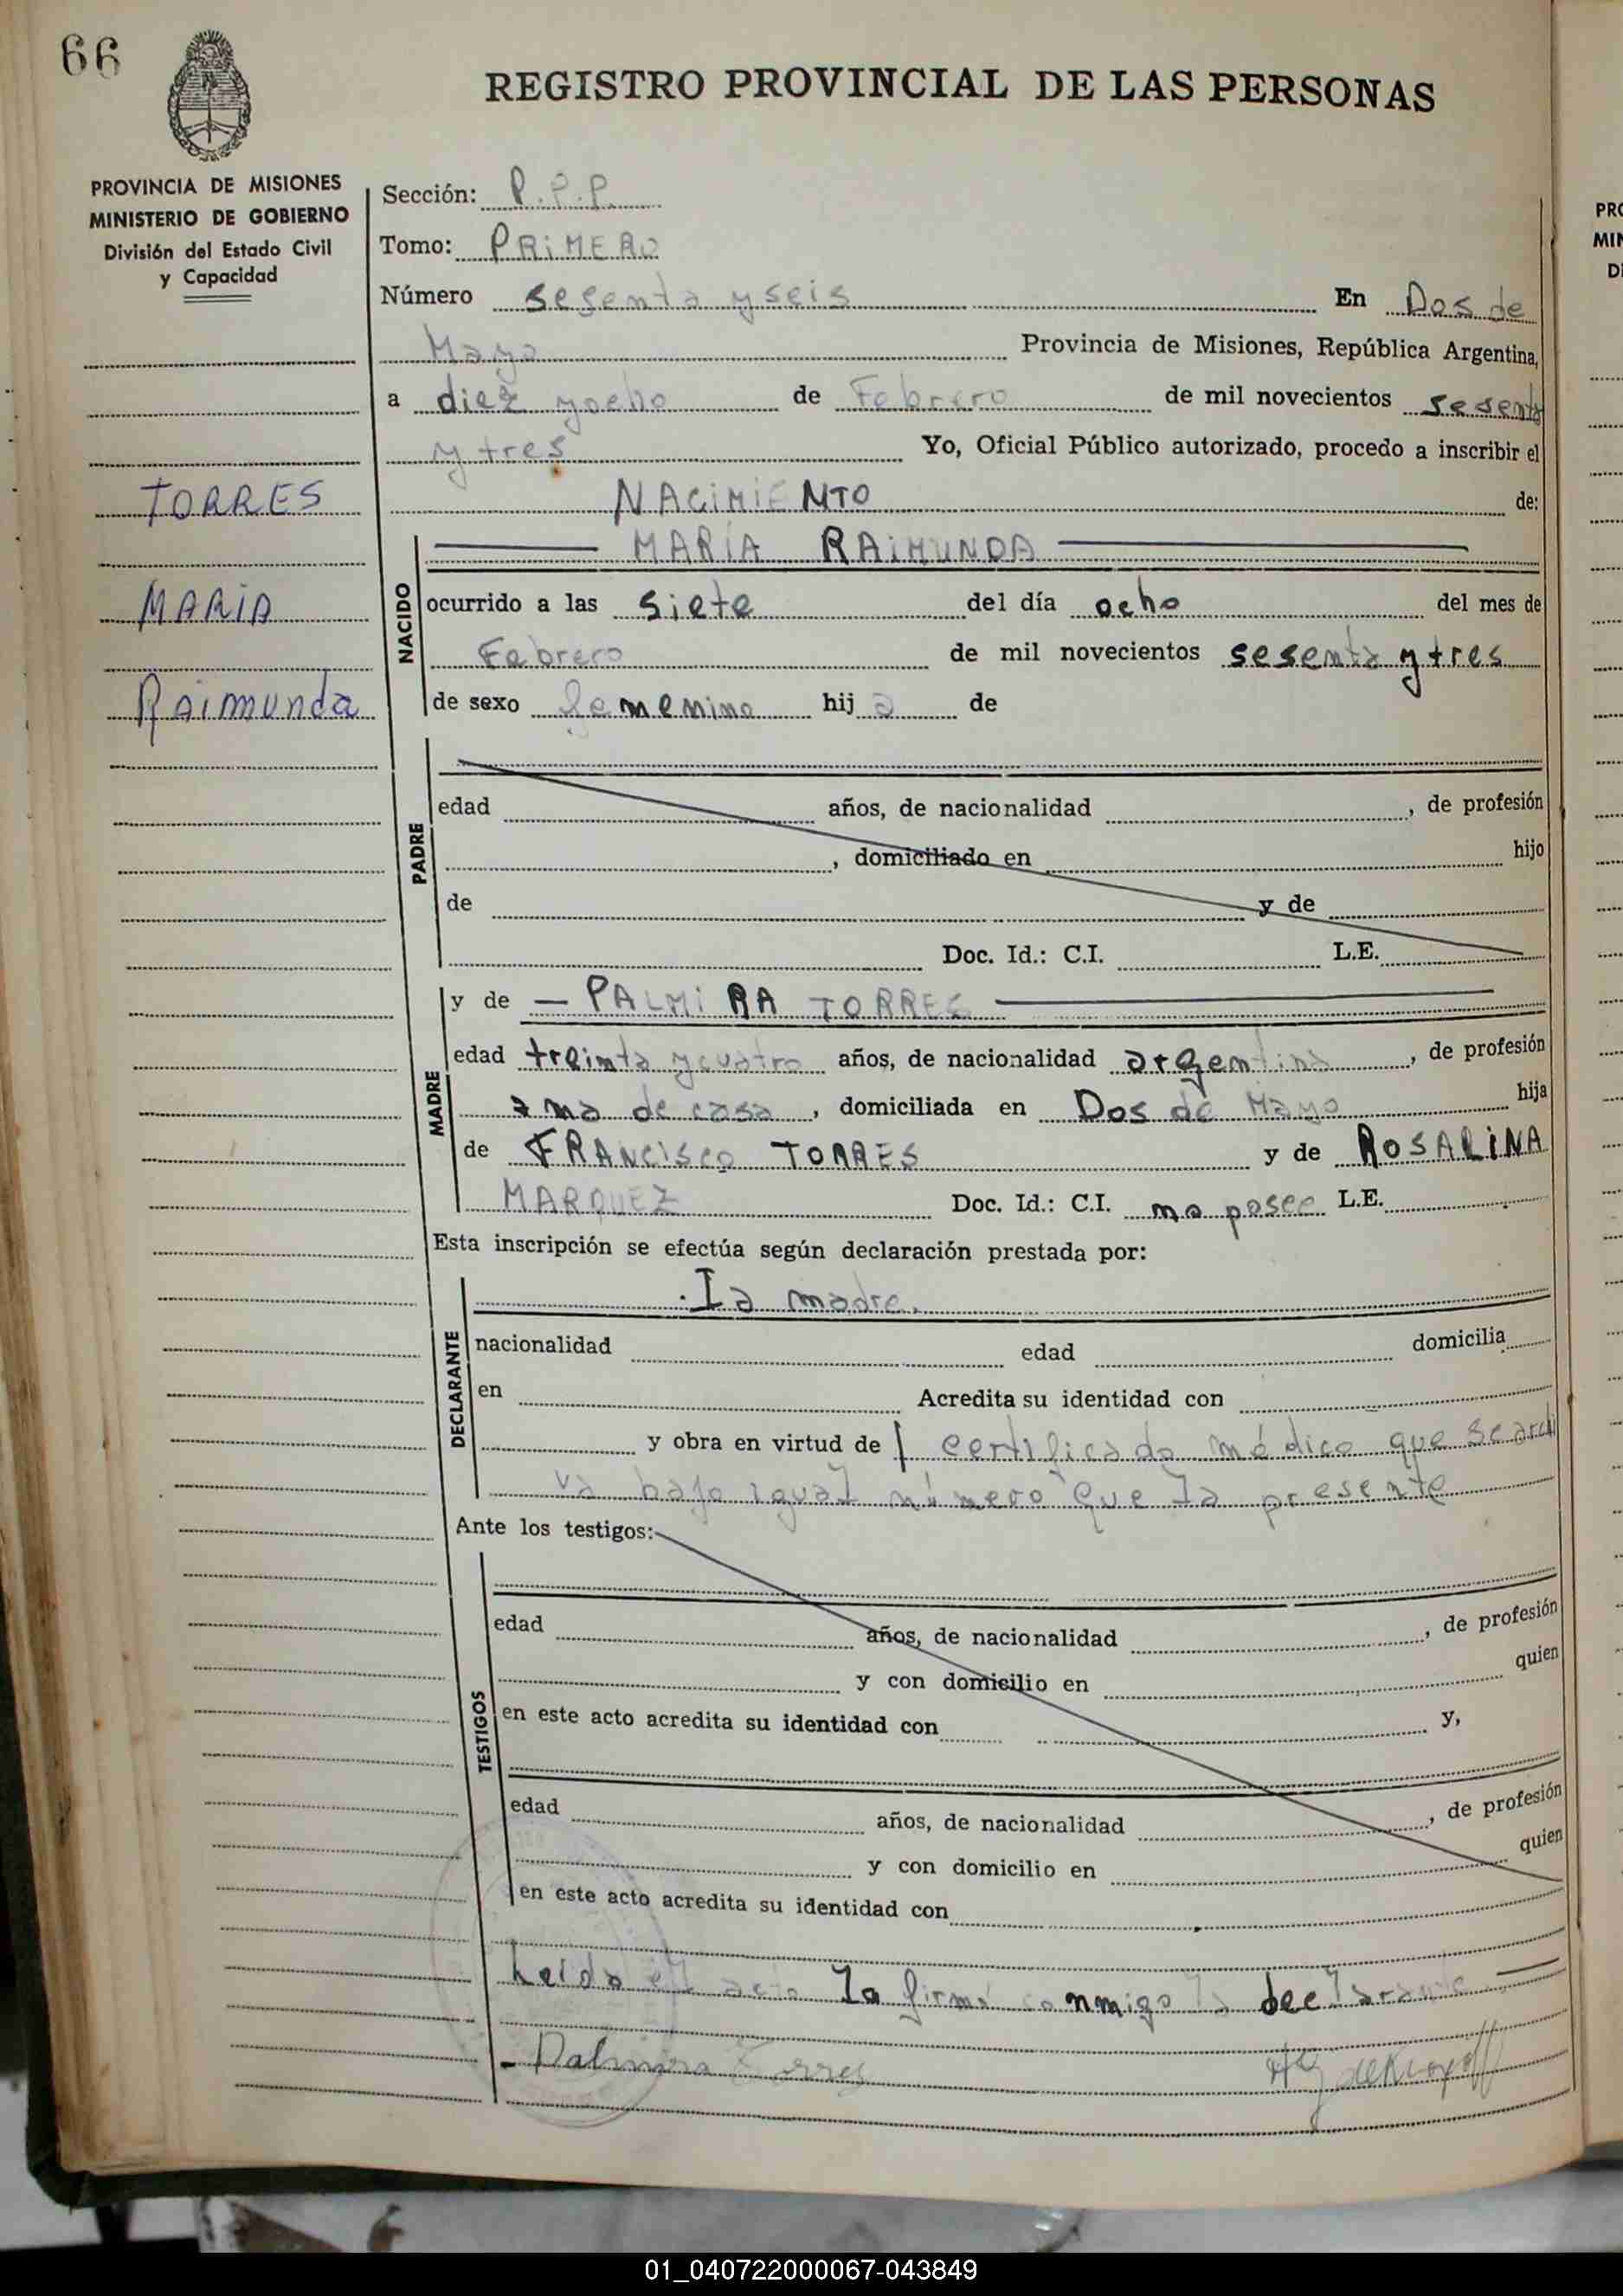 66
REGISTRO PROVINCIAL DE LAS PERSONAS
PROVINCIA DE MISIONES
MINISTERIO DE GOBIERNO
División del Estado Civil
y Capacidad
Sección: P.P.P.
Tomo: PRIMERO
Número sesenta y seis En Dos de
Mayo Provincia de Misiones, República Argentina,
a diez y ocho de Febrero de mil novecientos sesenta
y tres Yo, Oficial Público autorizado, procedo a inscribir el
NACIMIENTO de:
TORRES
MARIA
Raimunda
NACIDO
MARIA RAIMUNDA
ocurrido a las siete del día ocho del mes de
Febrero de mil novecientos sesenta y tres
de sexo femenino hija de
PADRE
edad años, de nacionalidad , de profesión
, domiciliado en hijo
de y de
Doc. Id.: C.I. L.E.
MADRE
y de — PALMIRA TORRES
edad treinta y cuatro años, de nacionalidad argentina, de profesión
ama de casa, domiciliada en Dos de Mayo hija
de FRANCISCO TORRES y de ROSALINA
MARQUEZ Doc. Id.: C.I. no posee L.E.
Esta inscripción se efectúa según declaración prestada por:
DECLARANTE
La madre.
nacionalidad edad domicilia
en Acredita su identidad con
y obra en virtud de certificado médico que se archi
va bajo igual número que la presente
Ante los testigos:
TESTIGOS
edad años, de nacionalidad , de profesión
y con domicilio en quien
en este acto acredita su identidad con y,
edad años, de nacionalidad , de profesión
y con domicilio en quien
en este acto acredita su identidad con
Leida el acta la firma conmigo la declarante
- Palmira Torres
PRO
MIN
01_040722000067-043849